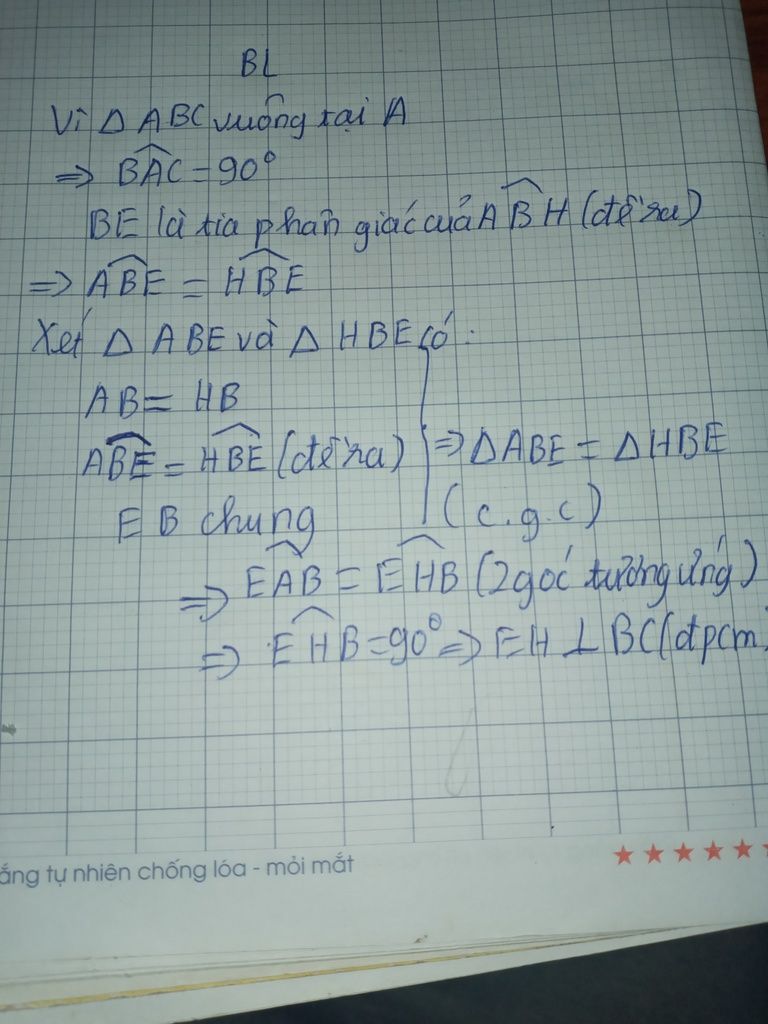 BL
Vì Δ ABC vuông tại A
=> BAC = 90°
BE là tia phân giác của ABH (đề ra)
=> ABE = HBE
Xét Δ ABE và Δ HBE có :
AB = HB
ABE = HBE (đề ra) => ΔABE = ΔHBE
EB chung (c.g.c)
=> EAB = EHB (2 góc tương ứng)
=> EHB = 90° => EH ⊥ BC (đpcm)
ắng tự nhiên chống lóa - mỏi mắt